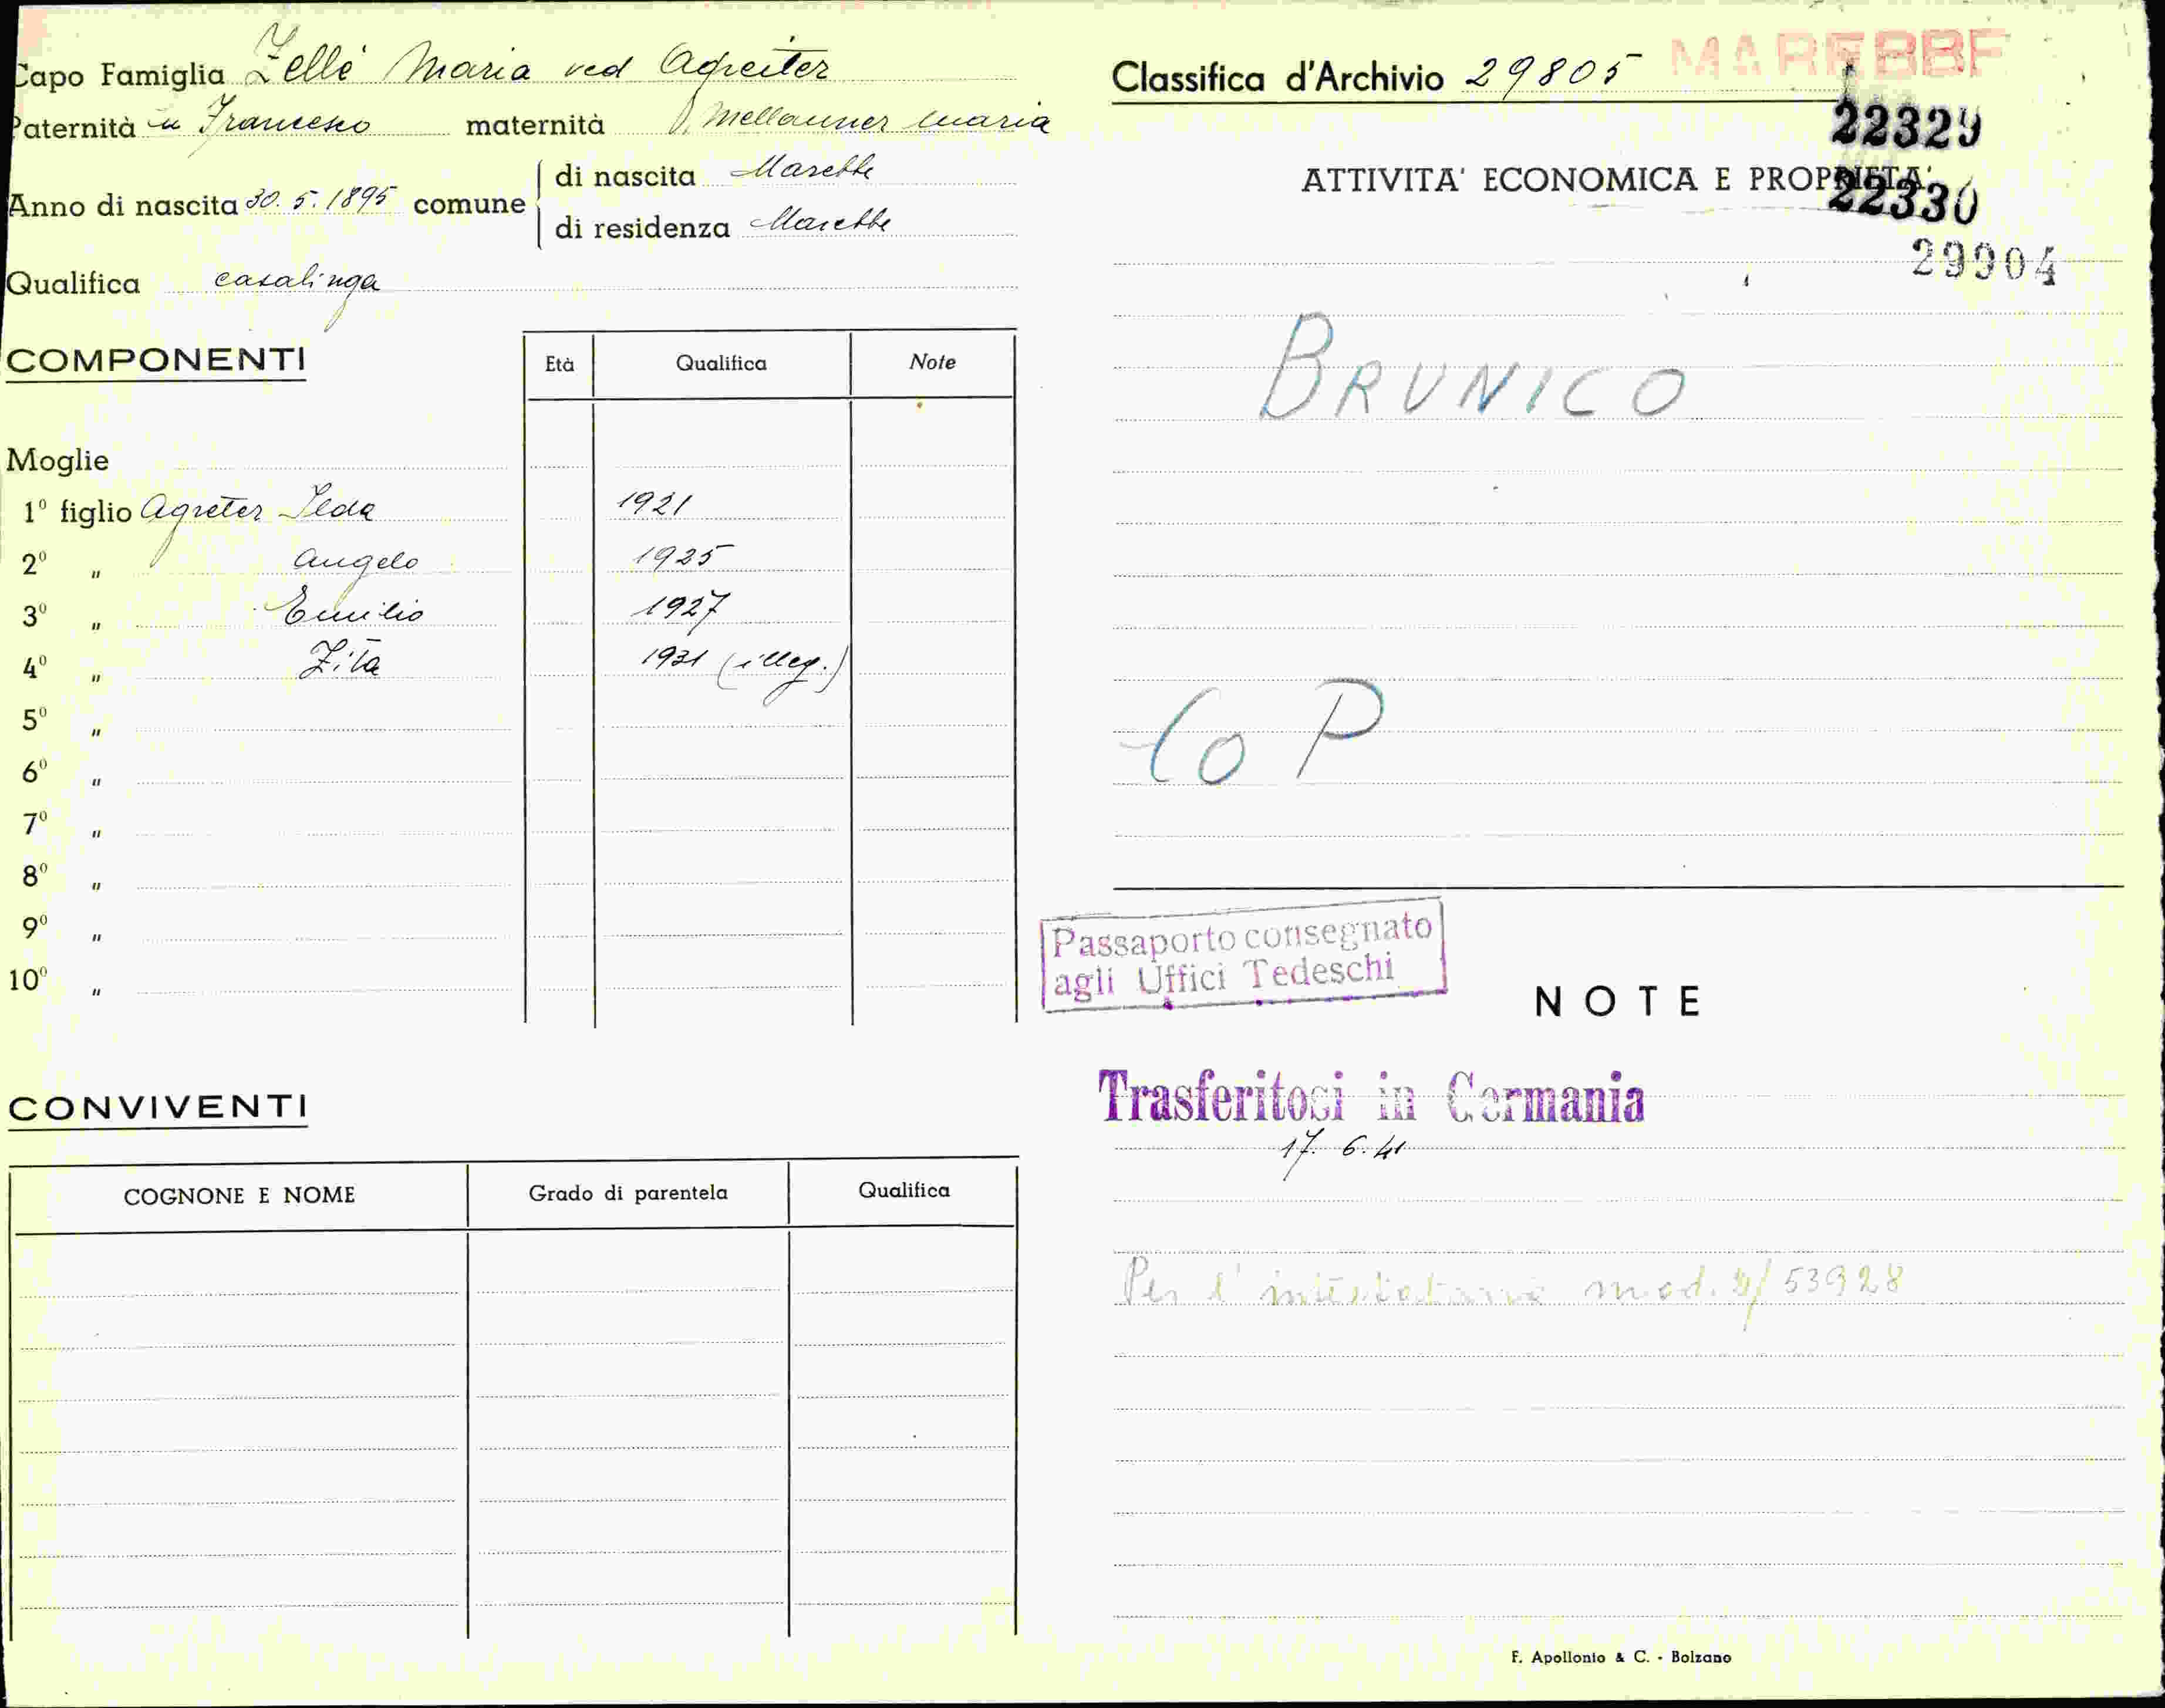 Capo Famiglia Zellé Maria ved Agreiter
Paternità fu Francesco maternità Mellauner Maria
Anno di nascita 30. 5. 1895 comune
di nascita Marebbe
di residenza Marebbe
Qualifica casalinga
COMPONENTI
Età Qualifica Note
Moglie
1º figlio Agreter Ilda 1921
2º " Angelo 1925
3º " Emilio 1927
4º " Zita 1931 (illeg.)
5º "
6º "
7º "
8º "
9º "
10º "
CONVIVENTI
COGNONE E NOME Grado di parentela Qualifica
Classifica d'Archivio 29805 MAREBBE
22329
ATTIVITA' ECONOMICA E PROPRIETA'
22330
29904
BRUNICO
Co P
Passaporto consegnato
agli Uffici Tedeschi
NOTE
Trasferitosi in Germania
17. 6. 41
Per l' mod. 53928
F. Apollonio & C. - Bolzano